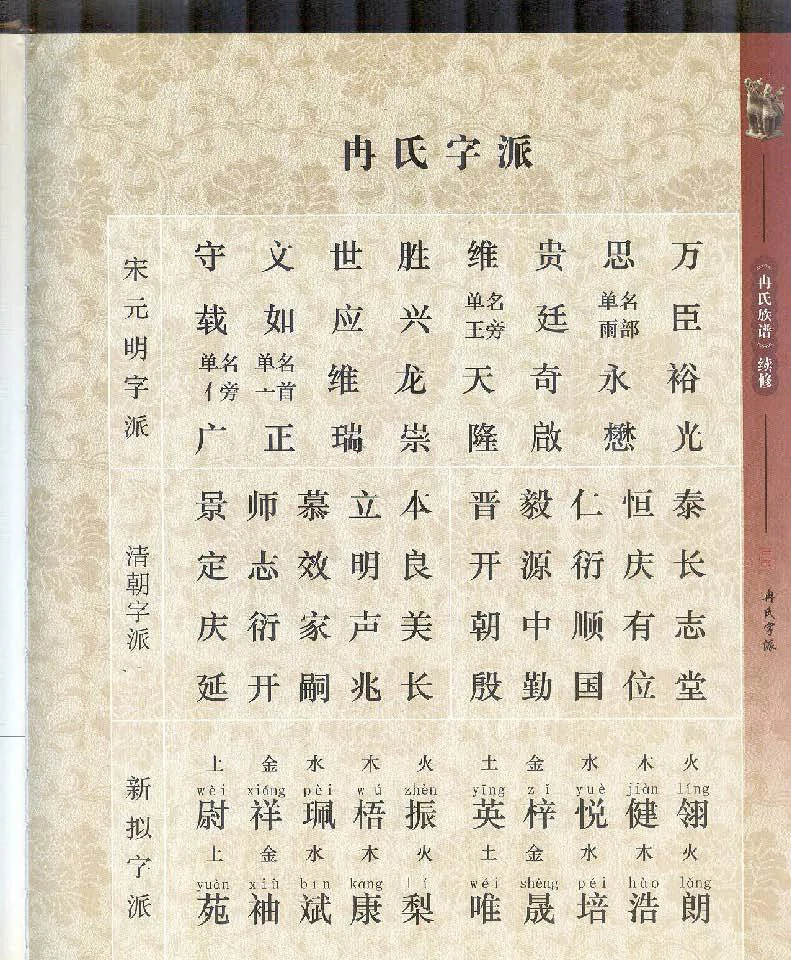 冉氏字派
宋元明字派
守 文 世 胜 维 贵 思 万
载 如 应 兴 单名王旁 廷 单名雨部 臣
单名亻旁 单名亠首 维 龙 天 奇 永 裕
广 正 瑞 崇 隆 啟 懋 光
清朝字派
景 师 慕 立 本 晋 毅 仁 恒 泰
定 志 效 明 良 开 源 衍 庆 长
庆 衍 家 声 美 朝 中 顺 有 志
延 开 嗣 兆 长 殷 勤 国 位 堂
新拟字派
土 金 水 木 火 土 金 水 木 火
wèi xiáng pèi wú zhèn yīng zǐ yuè jiàn líng
尉 祥 珮 梧 振 英 梓 悦 健 翎
土 金 水 木 火 土 金 水 木 火
yuàn xiù bīn kāng lí wéi shèng péi hào lǎng
苑 袖 斌 康 梨 唯 晟 培 浩 朗
《冉氏族谱》续修
冉氏字派